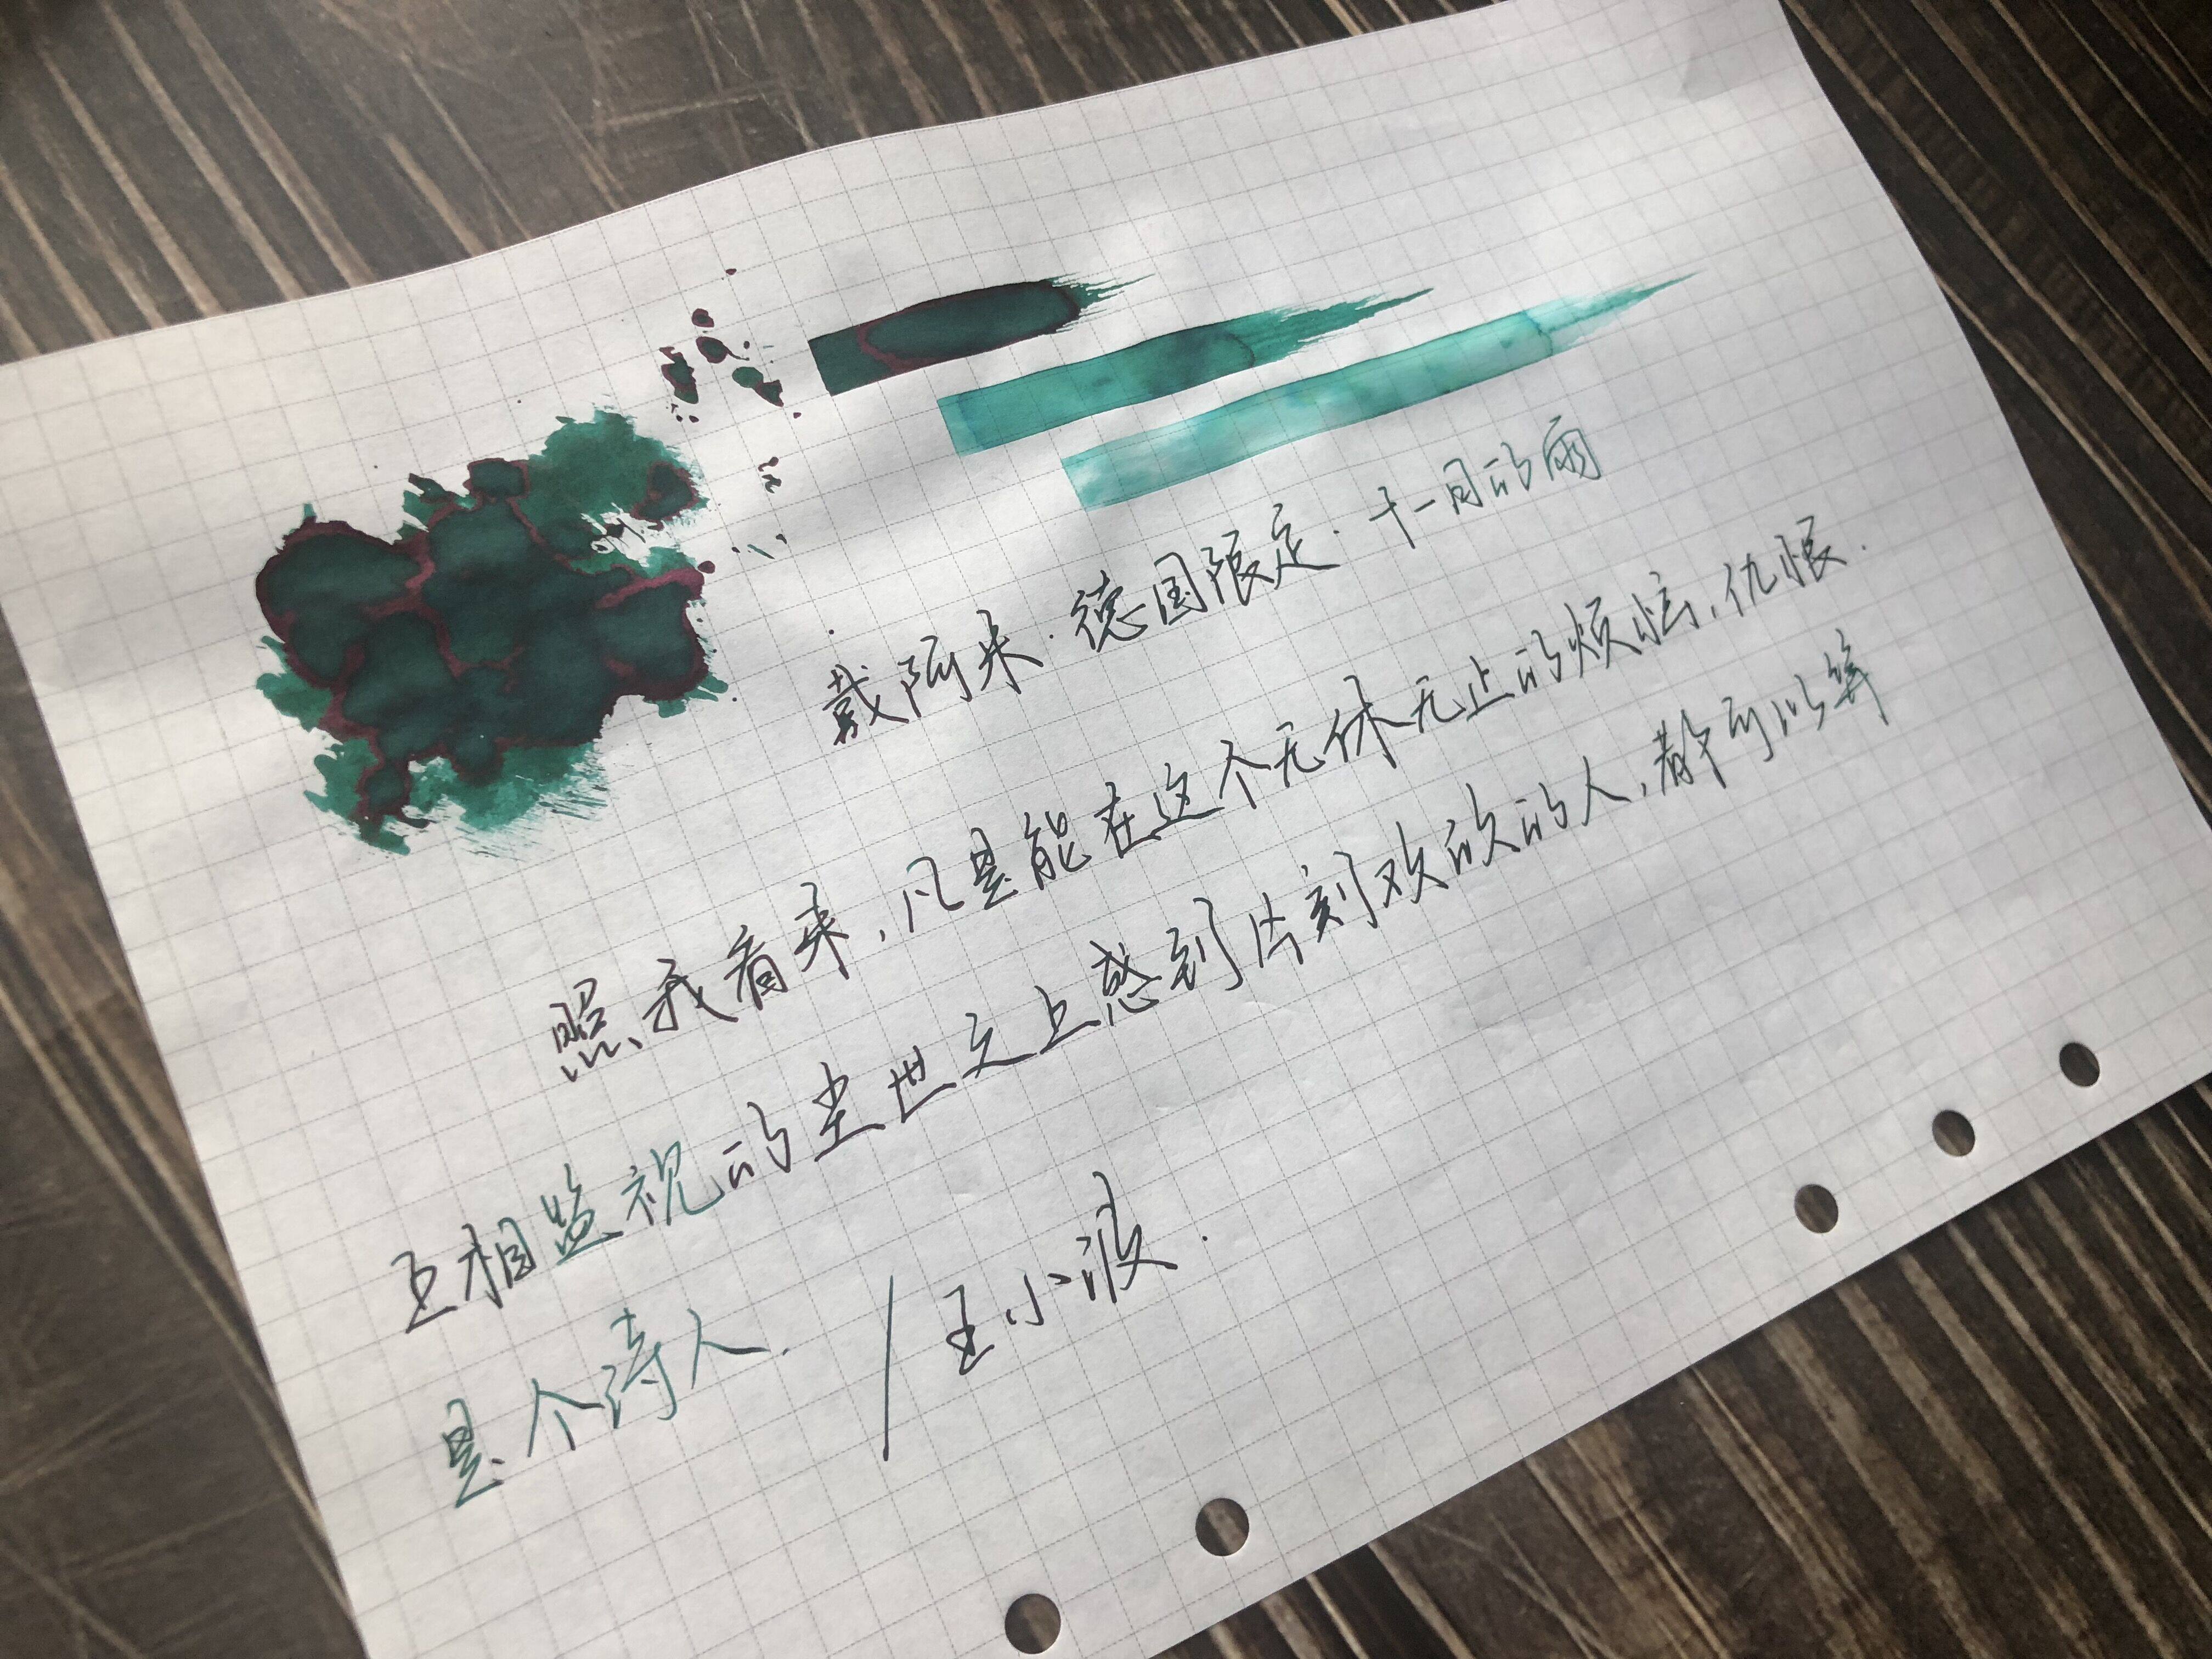 戴阿米·德国限定·十一月的雨
照我看来，凡是能在这个无休无止的烦恼，仇恨.
互相监视的尘世之上感到片刻欢欣的人，都可以算
是个诗人. /王小波.